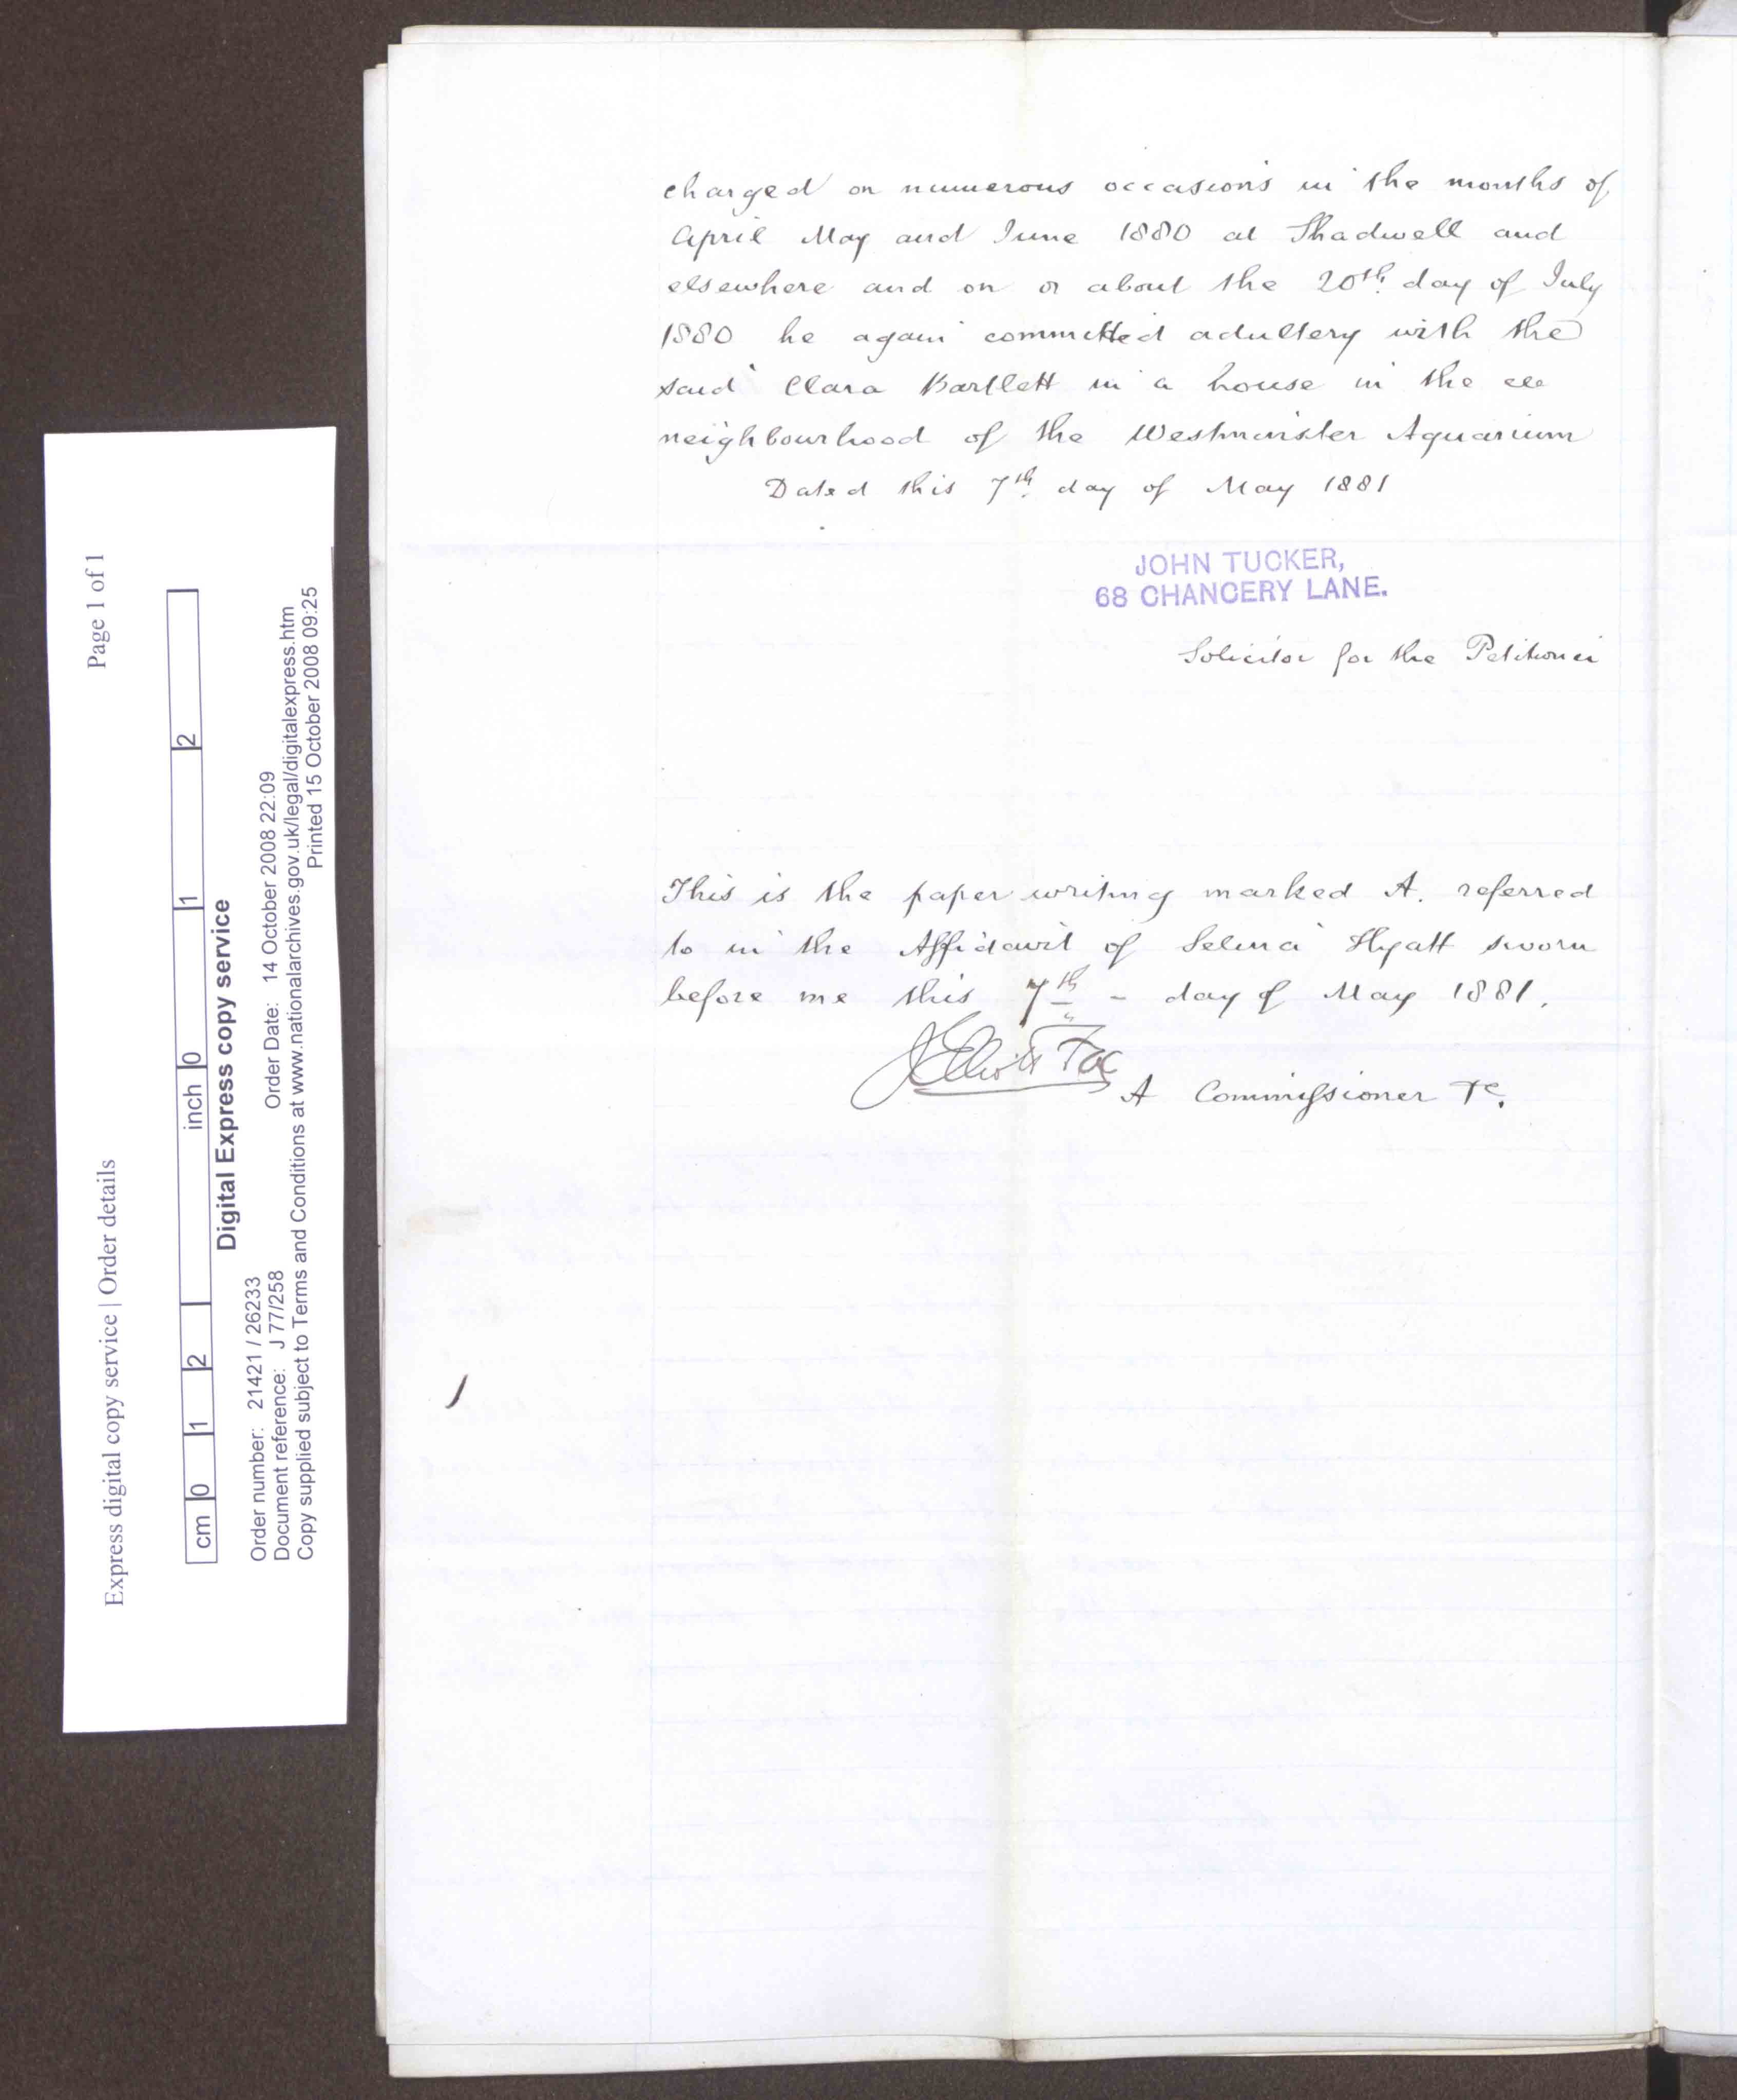 charged on numerous occasions in the months of
April May and June 1880 at Shadwell and
elsewhere and on or about the 20th. day of July
1880 he again committed adultery with the
said Clara Bartlett in a house in the
neighbourhood of the Westminster Aquarium
Dated this 7th. day of May 1881
JOHN TUCKER,
68 CHANCERY LANE.
Solicitor for the Petitioner
This is the paper writing marked A. referred
to in the Affidavit of Selina Hyatt sworn
before me this 7th - day of May 1881.
A Commissioner &c.
Express digital copy service | Order details Page 1 of 1
cm 0 1 2 inch 0 1 2
Digital Express copy service
Order number: 21421 / 26233 Order Date: 14 October 2008 22:09
Document reference: J 77/258
Copy supplied subject to Terms and Conditions at www.nationalarchives.gov.uk/legal/digitalexpress.htm
Printed 15 October 2008 09:25